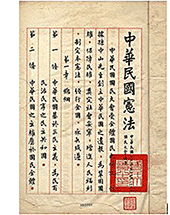 中華民國憲法
中華民國國民大會受全體國民之付託，依
據孫中山先生創立中華民國之遺教，為鞏固國
權，保障民權，奠定社會安寧，增進人民福利，
制定本憲法，頒行全國，永矢咸遵。
第一章 總綱
第一條 中華民國基於三民主義，為民有
民治民享之民主共和國。
第二條 中華民國之主權屬於國民全體。